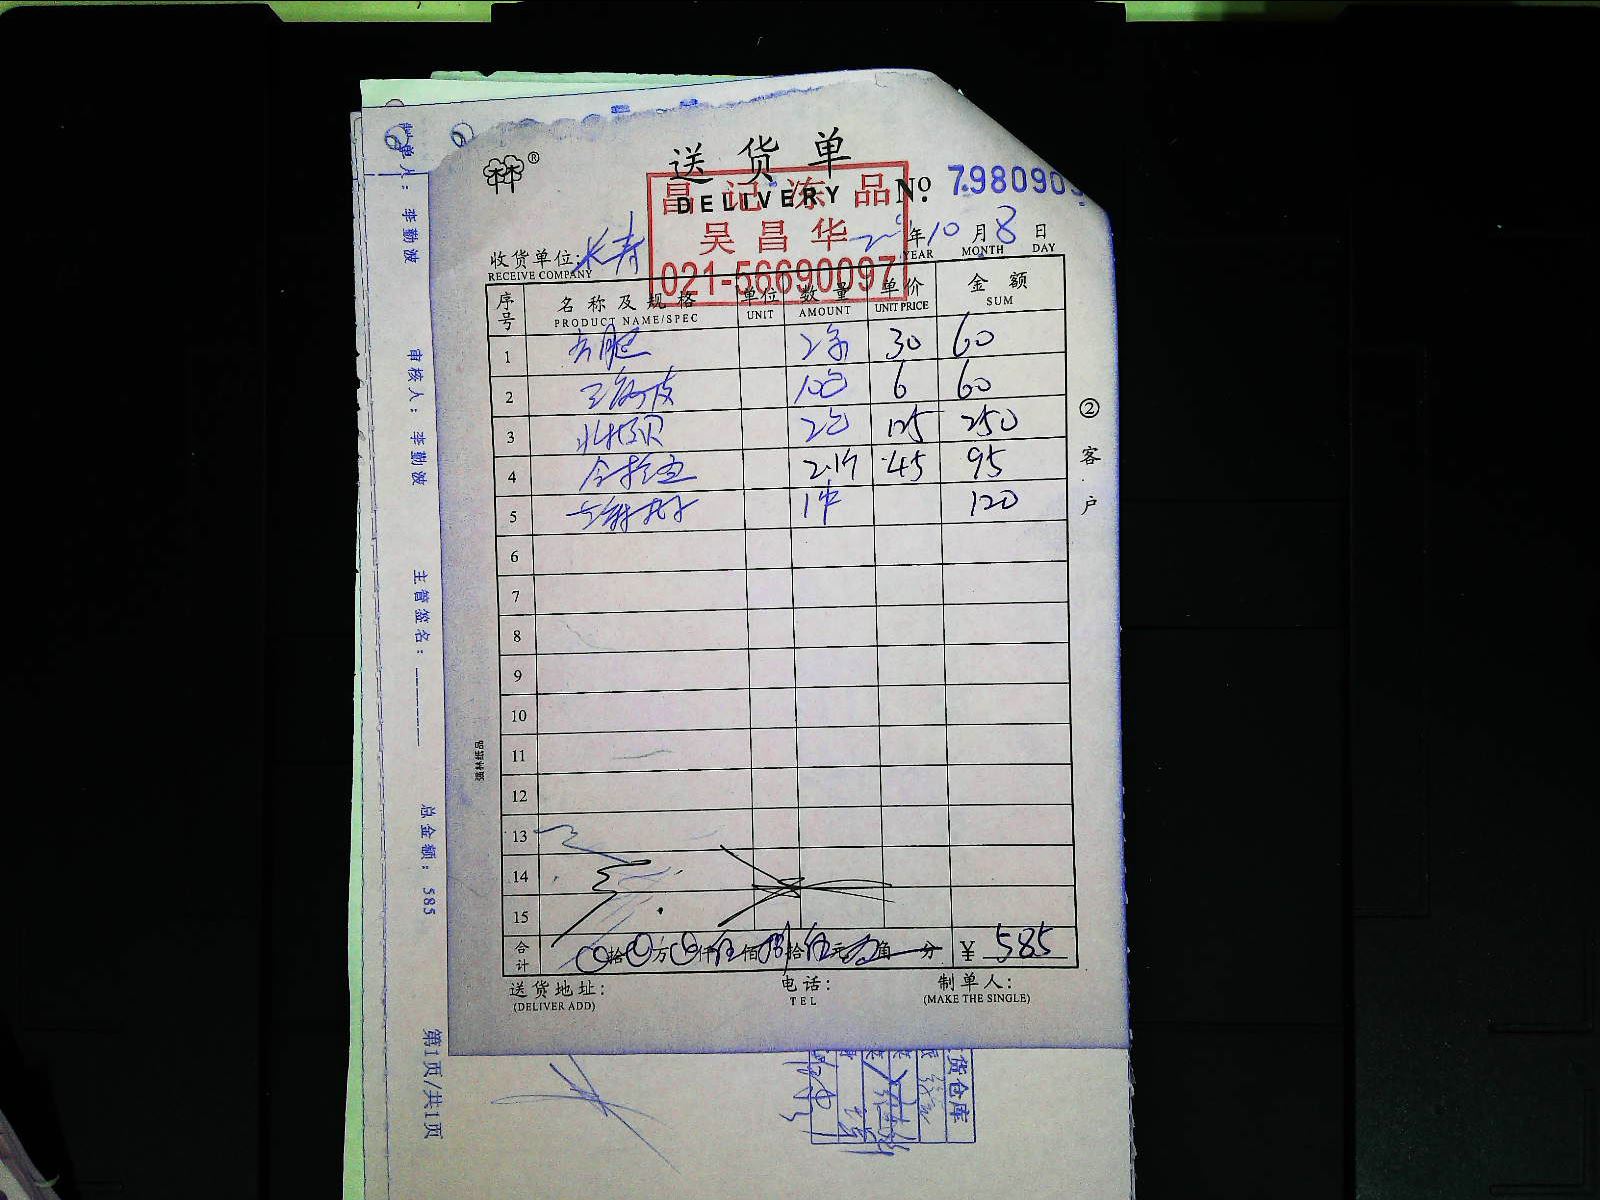 送货单
DELIVERY
®
No. 798090
昌记冻品
吴昌华
021-56690097
年 10 月 8 日
YEAR MONTH DAY
收货单位: 长寿
RECEIVE COMPANY
序号 名称及规格 单位 数量 单价 金额
PRODUCT NAME/SPEC UNIT AMOUNT UNIT PRICE SUM
1 2条 30 60
2 10包 6 60
3 2包 125 250
4 2.1斤 45 95
5 1件 120
6
7
8
9
10
11
12
13
14
15
合计 0拾0万0仟伍佰捌拾伍元 角 分 ¥ 585
送货地址: 电话: 制单人:
(DELIVER ADD) TEL (MAKE THE SINGLE)
②客户
强林纸品
制单人: 李勤波
审核人: 李勤波
主管签名: _______
总金额: 585
第1页/共1页
货仓库